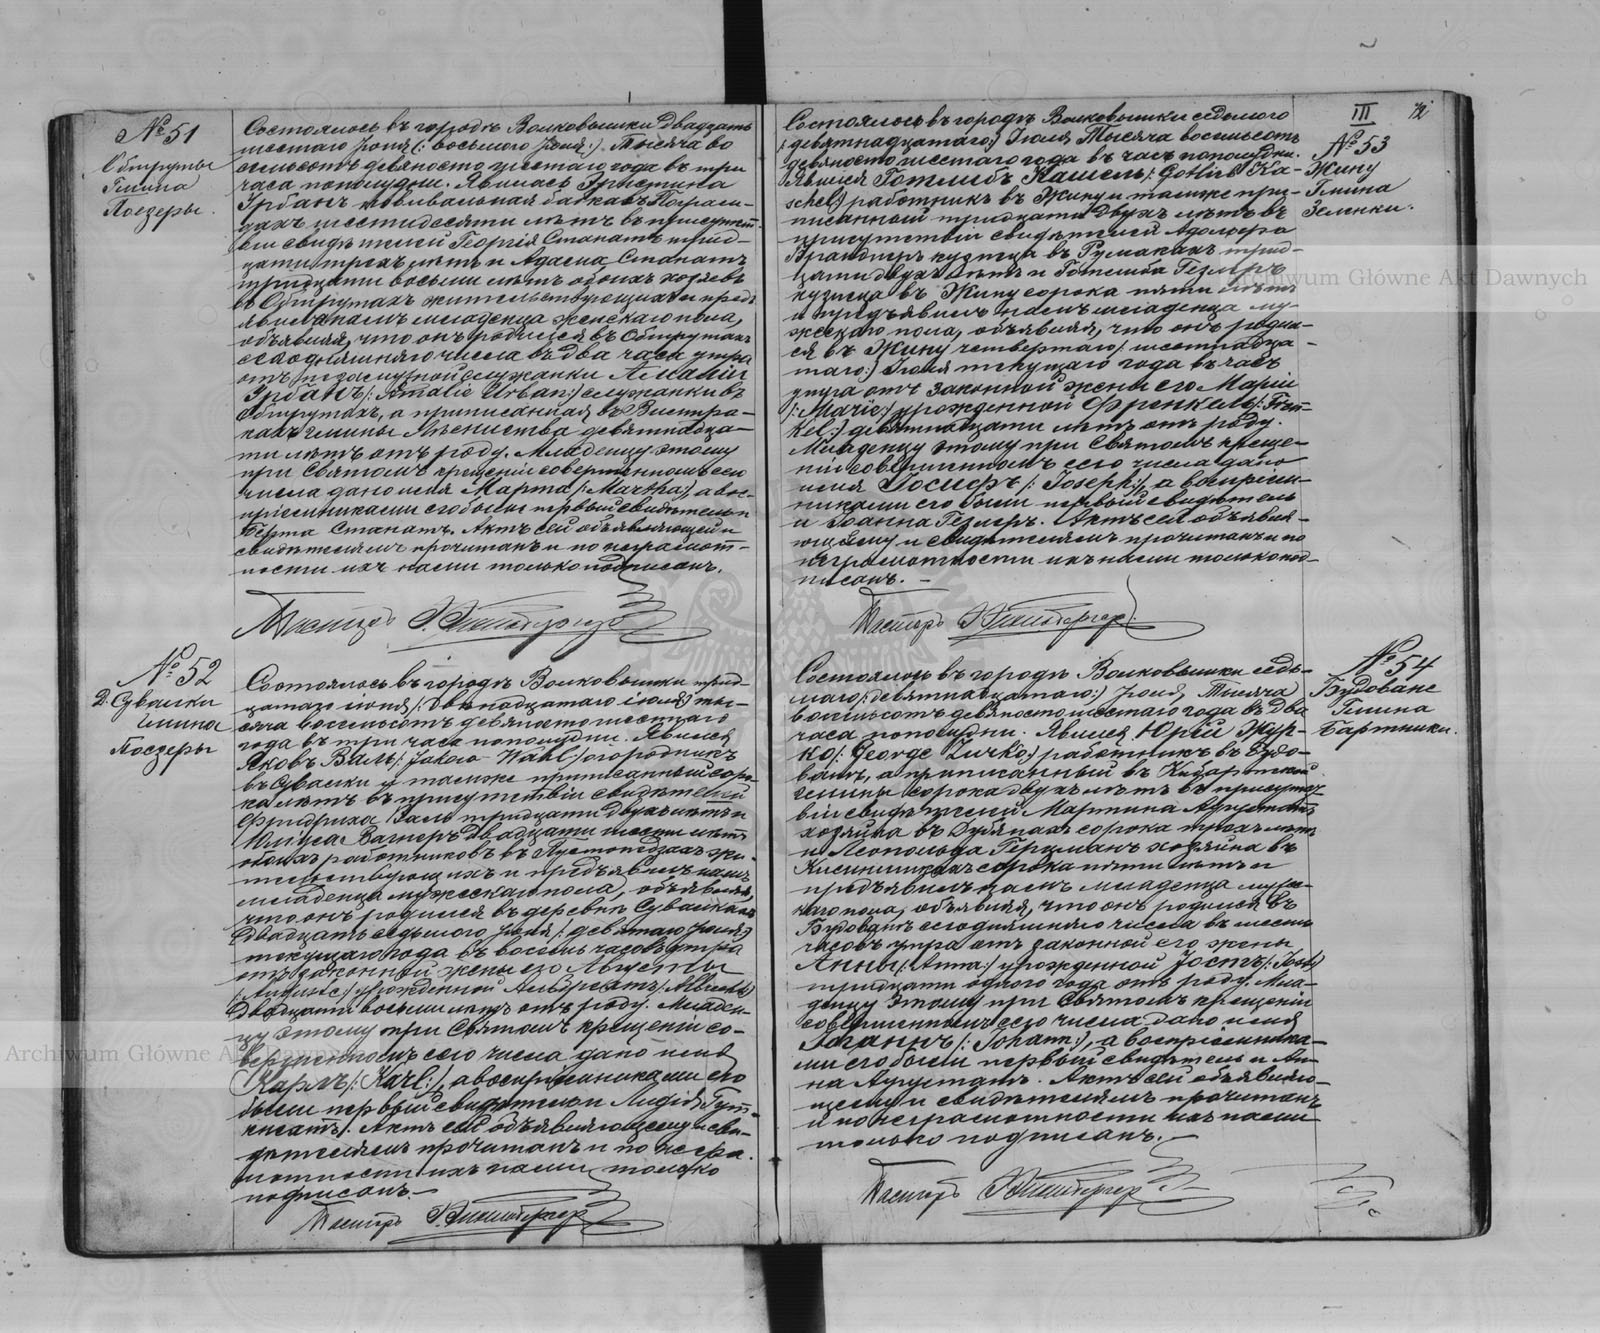 № 51
Обшруты
Гмина
Поезеры.
Состоялось въ городѣ Волковышки двадцать
шестаго Іюня (: восьмого Іюля:) Тысяча во
семьсотъ девяносто шестаго года въ три
часа пополудни. Явилась Эрнстина
Урбанъ повивальная бабка въ
шестидесяти лѣтъ въ присутст-
віи свидѣтелей Георгія Станатъ трид-
цати трехъ лѣтъ и Адама Станатъ
тридцати восьми лѣтъ обоихъ хозяевъ
въ Обшрутахъ жительствующихъ и предъ
явила намъ младенца женскаго пола,
объявляя, что онъ родился въ Обшрутахъ
сегодняшняго числа въ два часа утра
отъ незамужной служанки Амаліи
Урбанъ (: Amalie Urban:) служанки въ
Обшрутахъ, а приписанная въ
гмины девятнадца-
ти лѣтъ отъ роду. Младенцу этому
при Святомъ крещеніи совершенномъ сего
числа дано имя Марта (: Martha:), а вос-
пріемниками его были первый свидѣтель и
Берта Станатъ. Актъ сей объявляющей и
свидѣтелямъ прочитанъ и по неграмот-
ности ихъ нами только подписанъ.
Пасторъ
№ 52
Д. Сувалки
гмина
Поезеры
Состоялось въ городѣ Волковышки трид-
цатаго іюня (: двѣнадцатаго іюля:) ты-
сяча восемьсотъ девяносто шестаго
года въ три часа пополудни. Явился
Яковъ Валь (: Jakob Wahl:) огородникъ
въ Сувалки и тамже приписанный соро-
ка лѣтъ въ присутствіи свидѣтелей
Фридриха Валь тридцати двухъ лѣтъ и
Юліуса Вагнеръ двадцати шести лѣтъ
обоихъ работниковъ въ жи-
тельствующихъ и предъявилъ намъ
младенца мужескаго пола, объявляя,
что онъ родился въ деревнѣ Сувалкахъ
двадцать седьмого Іюня (: девятаго Іюля:)
текущаго года въ восемь часовъ утра
отъ законной жены его Августы
(: Auguste:) урожденной Альбрехтъ (: Albrecht:)
двадцати восьми лѣтъ отъ роду. Младен-
цу этому при Святомъ крещеніи со-
вершенномъ сего числа дано имя
Карлъ (: Karl:), а воспріемниками его
были первый свидѣтель и Лидія Гут-
Актъ сей объявляющему и сви-
дѣтелямъ прочитанъ и по негра-
мотности ихъ нами только
подписанъ.—
Пасторъ
III 72
№ 53
Жину
Гмина
Зеленки.
Состоялось въ городѣ Волковышки седьмого
(: девятнадцатаго:) Іюля Тысяча восемьсотъ
девяносто шестаго года въ часъ пополудни.
Явился Готлибъ Кашель (: Gotlieb Ka-
schel:) работникъ въ Жину и тамже при-
писанный тридцати двухъ лѣтъ въ
присутствіи свидѣтелей Адольфа
кузнеца въ Румокахъ трид-
цати двухъ лѣтъ и Готлиба Гезлеръ
кузнеца въ Жину сорока пяти лѣтъ
и предъявилъ намъ младенца му-
жескаго пола, объявляя, что онъ родил-
ся въ Жину четвертаго (: шестнадца-
таго:) Іюля текущаго года въ часъ
утра отъ законной жены его Маріи
(: Marie:) урожденной Френкель (: Fren-
kel:) девятнадцати лѣтъ отъ роду.
Младенцу этому при Святомъ креще-
ніи совершенномъ сего числа дано
имя Іосифъ (: Joseph:), а воспріем-
никами его были первый свидѣтель
и Іоанна Гезлеръ. Актъ сей объявля-
ющему и свидѣтелямъ прочитанъ и по
неграмотности ихъ нами только под-
писанъ.—
Пасторъ
№ 54
Будоване
Гмина
Бартники.
Состоялось въ городѣ Волковышки седь-
маго (: девятнадцатаго:) Іюля Тысяча
восемьсотъ девяносто шестаго года въ два
часа пополудни. Явился Юрій Жур-
ко (: George Zurko:) работникъ въ Будо-
ванѣ, а приписанный въ Кибартской
гмины сорока двухъ лѣтъ въ присутст-
віи свидѣтелей Мартина Августатъ
хозяина въ Дубянахъ сорока трехъ лѣтъ
и Леопольда Германъ хозяина въ
сорока пяти лѣтъ и
предъявилъ намъ младенца мужес-
каго пола, объявляя, что онъ родился въ
Будованѣ сегодняшняго числа въ шесть
часовъ утра отъ законной его жены
Анны (: Anna:) урожденной Іостъ (: Jost:)
тридцати одного года отъ роду. Мла-
денцу этому при Святомъ крещеніи
совершенномъ сего числа дано имя
Іоганнъ (: Johann:), а воспріемника-
ми его были первый свидѣтель и Ан-
на Августатъ. Актъ сей объявляю-
щему и свидѣтелямъ прочитанъ
и по неграмотности ихъ нами
только подписанъ.—
Пасторъ
Archiwum Główne Akt Dawnych
Archiwum Główne Akt Dawnych